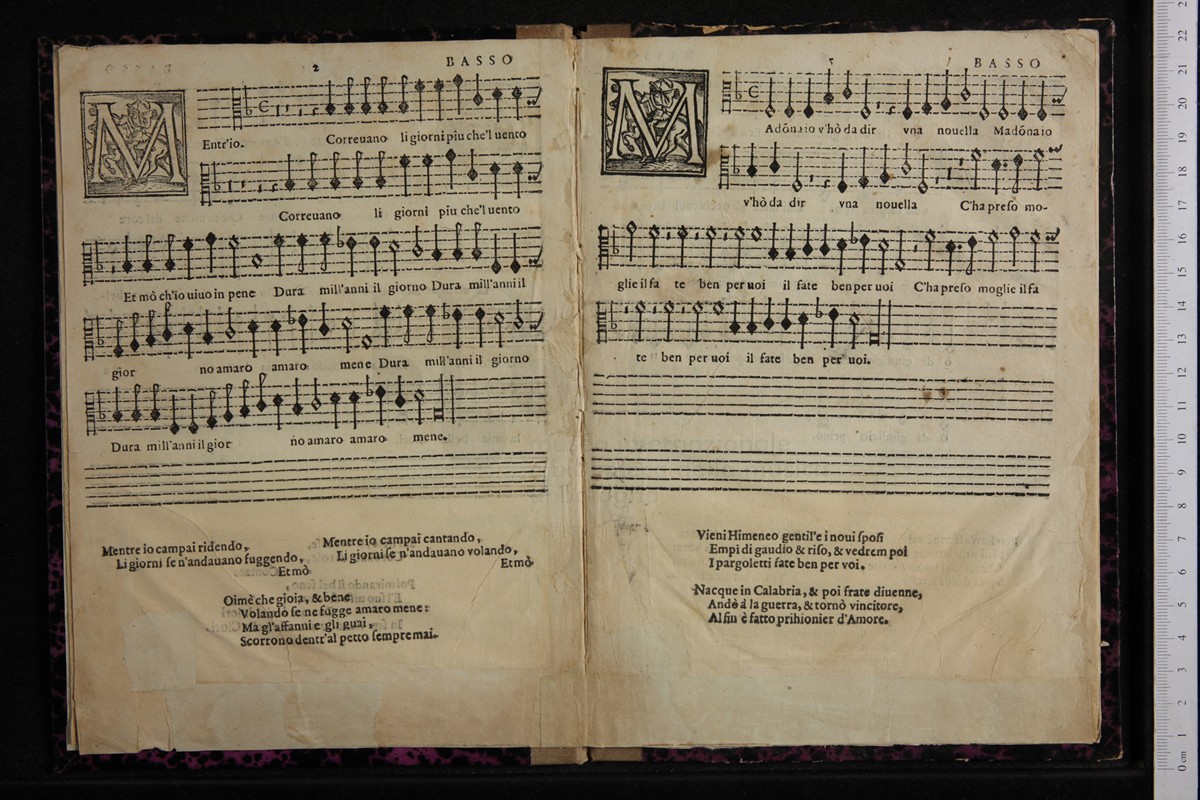 2
BASSO
M
Entr'io. Correuano li giorni piu che'l uento
Correuano li giorni piu che'l uento
Et mò ch'io uiuo in pene Dura mill'anni il giorno Dura mill'anni il
gior no amaro amaro mene Dura mill'anni il giorno
Dura mill'anni il gior no amaro amaro mene.
Mentre io campai ridendo,
Li giorni se n'andauano fuggendo,
Et mò
Mentre io campai cantando,
Li giorni se n'andauano volando,
Et mò
Oimè che gioia, & bene
Volando se ne fugge amaro mene:
Ma gl'affanni e gli guai,
Scorrono dentr'al petto sempre mai.
BASSO
M
Adõnaio v'hò da dir vna nouella Madõnaio
v'hò da dir vna nouella C'ha preso mo-
glie il fa te ben per uoi il fate ben per uoi C'ha preso moglie il fa
te ben per uoi il fate ben per uoi.
Vieni Himeneo gentil'e i noui sposi
Empi di gaudio & riso, & vedrem poi
I pargoletti fate ben per voi.
Nacque in Calabria, & poi frate diuenne,
Andò à la guerra, & tornò vincitore,
Alfin è fatto prihionier d'Amore.
22
21
20
19
18
17
16
15
14
13
12
11
10
9
8
7
6
5
4
3
2
1
0 cm